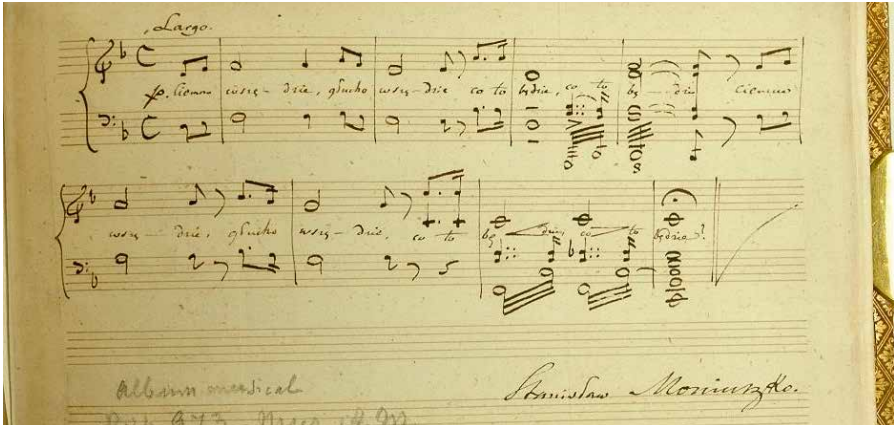 Largo.
p. Ciemno wszę-dzie, głucho wszę-dzie co to będzie, co to bę-dzie ciemno
wszę-dzie, głucho wszę-dzie, co to bę-dzie, co to będzie?
Album musical
Stanisław Moniuszko.